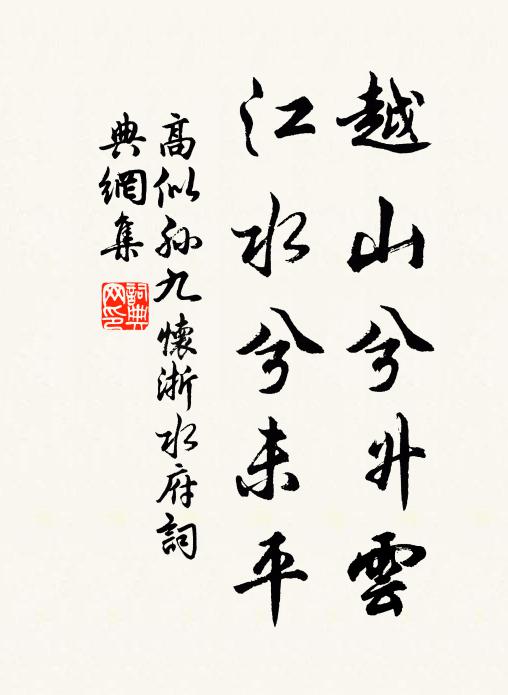 越山兮升雲
江水兮未平
高似孙九懷浙水府詞
典網集
詞典網印